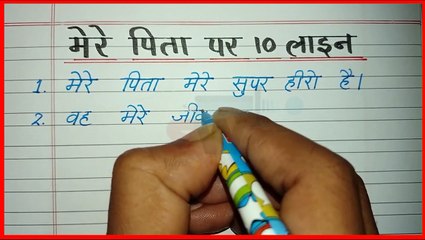 मेरे पिता पर १० लाइन
1. मेरे पिता मेरे सुपर हीरो है।
2. वह मेरे जीव